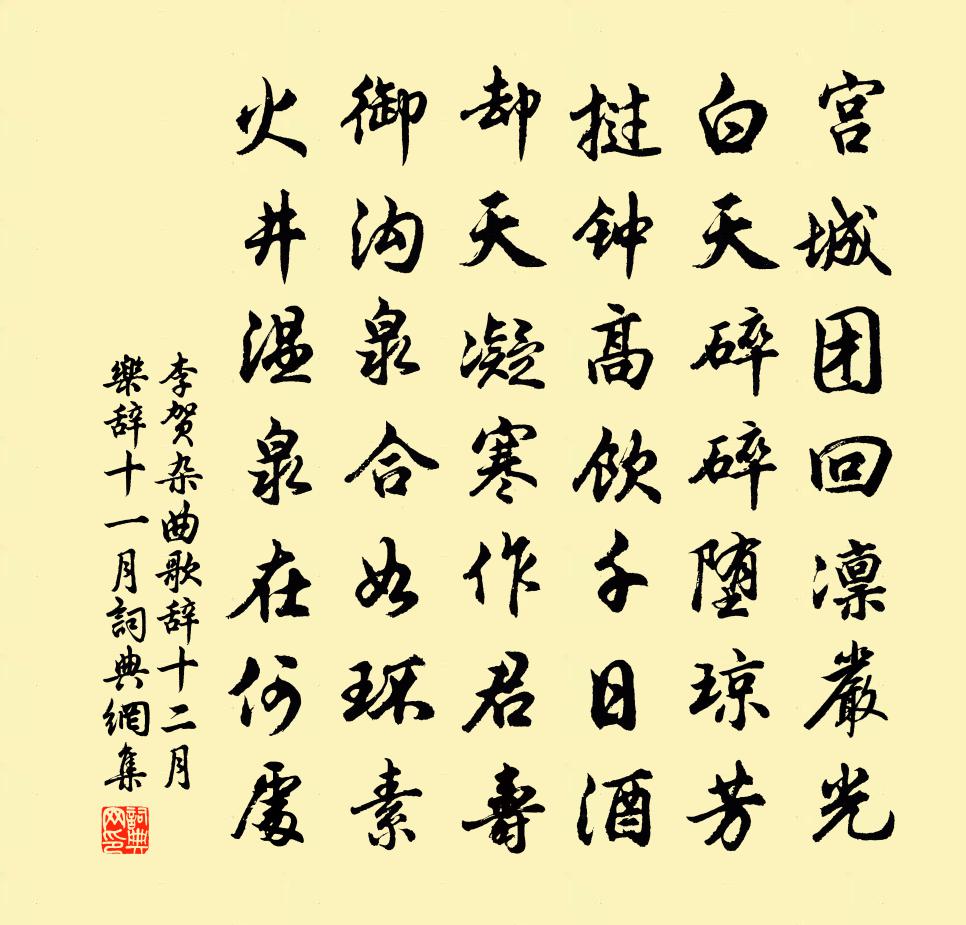 宫城团回凛嚴光
白天碎碎堕琼芳
挝钟高饮千日酒
却天凝寒作君壽
御沟泉合如环素
火井温泉在何處
李贺杂曲歌辞十二月
樂辞十一月詞典網集
詞典網印